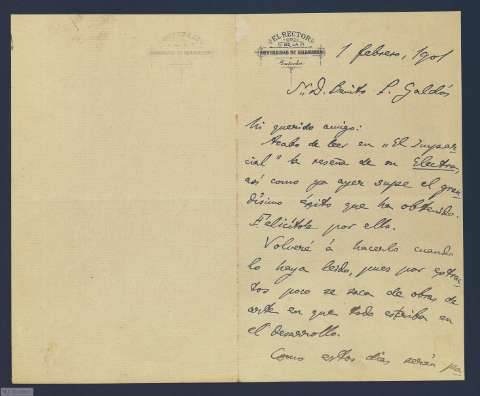 EL RECTOR
DE LA
UNIVERSIDAD DE SALAMANCA
Particular
1 febrero, 1901
Sr. D. Benito P. Galdós
Mi querido amigo:
Acabo de leer en "El Impar-
cial" la reseña de su Electra,
así como ya ayer supe el gran
dísimo éxito que ha obtenido.
Felicítole por ello.
Volveré á hacerlo cuando
lo haya leído, pues por extrac-
tos poco se saca de obras de
arte en que todo estriba en
el desarrollo.
Como estos días serán pa